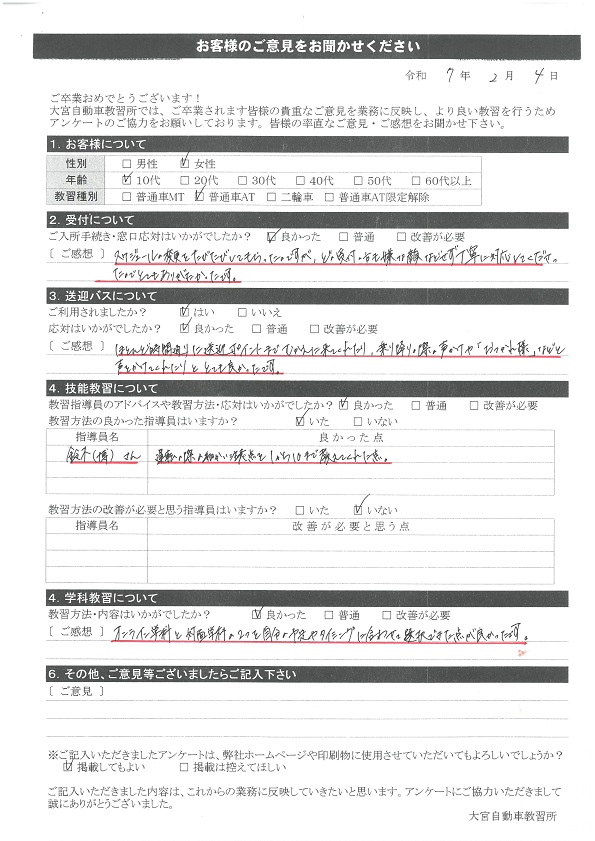 お客様のご意見をお聞かせください
令和 7 年 2 月 4 日
ご卒業おめでとうございます！
大宮自動車教習所では、ご卒業されます皆様の貴重なご意見を業務に反映し、より良い教習を行うため
アンケートのご協力をお願いしております。皆様の率直なご意見・ご感想をお聞かせ下さい。
1. お客様について
性別 □ 男性 ☑ 女性
年齢 ☑ 10代 □ 20代 □ 30代 □ 40代 □ 50代 □ 60代以上
教習種別 □ 普通車MT ☑ 普通車AT □ 二輪車 □ 普通車AT限定解除
2. 受付について
ご入所手続き・窓口応対はいかがでしたか？ ☑ 良かった □ 普通 □ 改善が必要
〔 ご感想 〕 スケジュールの変更をたびたびしてもらったのですが、どの受付の方も嫌な顔などせず丁寧に対応してくださっ
たのでとてもありがたかったです。
3. 送迎バスについて
ご利用されましたか？ ☑ はい □ いいえ
応対はいかがでしたか？ ☑ 良かった □ 普通 □ 改善が必要
〔 ご感想 〕 ほとんど時間通りに送迎ポイントまでむかえに来てくれたり、乗り降りの際の声かけや「おつかれ様」などと
声をかけてくれたりととても良かったです。
4. 技能教習について
教習指導員のアドバイスや教習方法・応対はいかがでしたか？ ☑ 良かった □ 普通 □ 改善が必要
教習方法の良かった指導員はいますか？ ☑ いた □ いない
指導員名 良かった点
鈴木(博) さん 運転の際の細かい注意点を1から10まで教えてくれた点。
教習方法の改善が必要と思う指導員はいますか？ □ いた ☑ いない
指導員名 改善が必要と思う点
4. 学科教習について
教習方法・内容はいかがでしたか？ ☑ 良かった □ 普通 □ 改善が必要
〔 ご感想 〕 オンライン学科と対面学科の2つを自分の予定やタイミングに合わせて選択できた点が良かったです。
6. その他、ご意見等ございましたらご記入下さい
〔 ご意見 〕
※ご記入いただきましたアンケートは、弊社ホームページや印刷物に使用させていただいてもよろしいでしょうか？
☑ 掲載してもよい □ 掲載は控えてほしい
ご記入いただきました内容は、これからの業務に反映していきたいと思います。アンケートにご協力いただきまして
誠にありがとうございました。
大宮自動車教習所